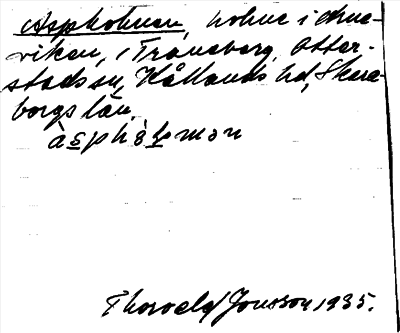 Aspholmen, holme i Arne-
viken, i Traneberg, Otter-
stads sn, Kållands hd, Skara-
borgs län.
àsphòlmən
Thorvald Jonsson 1935.